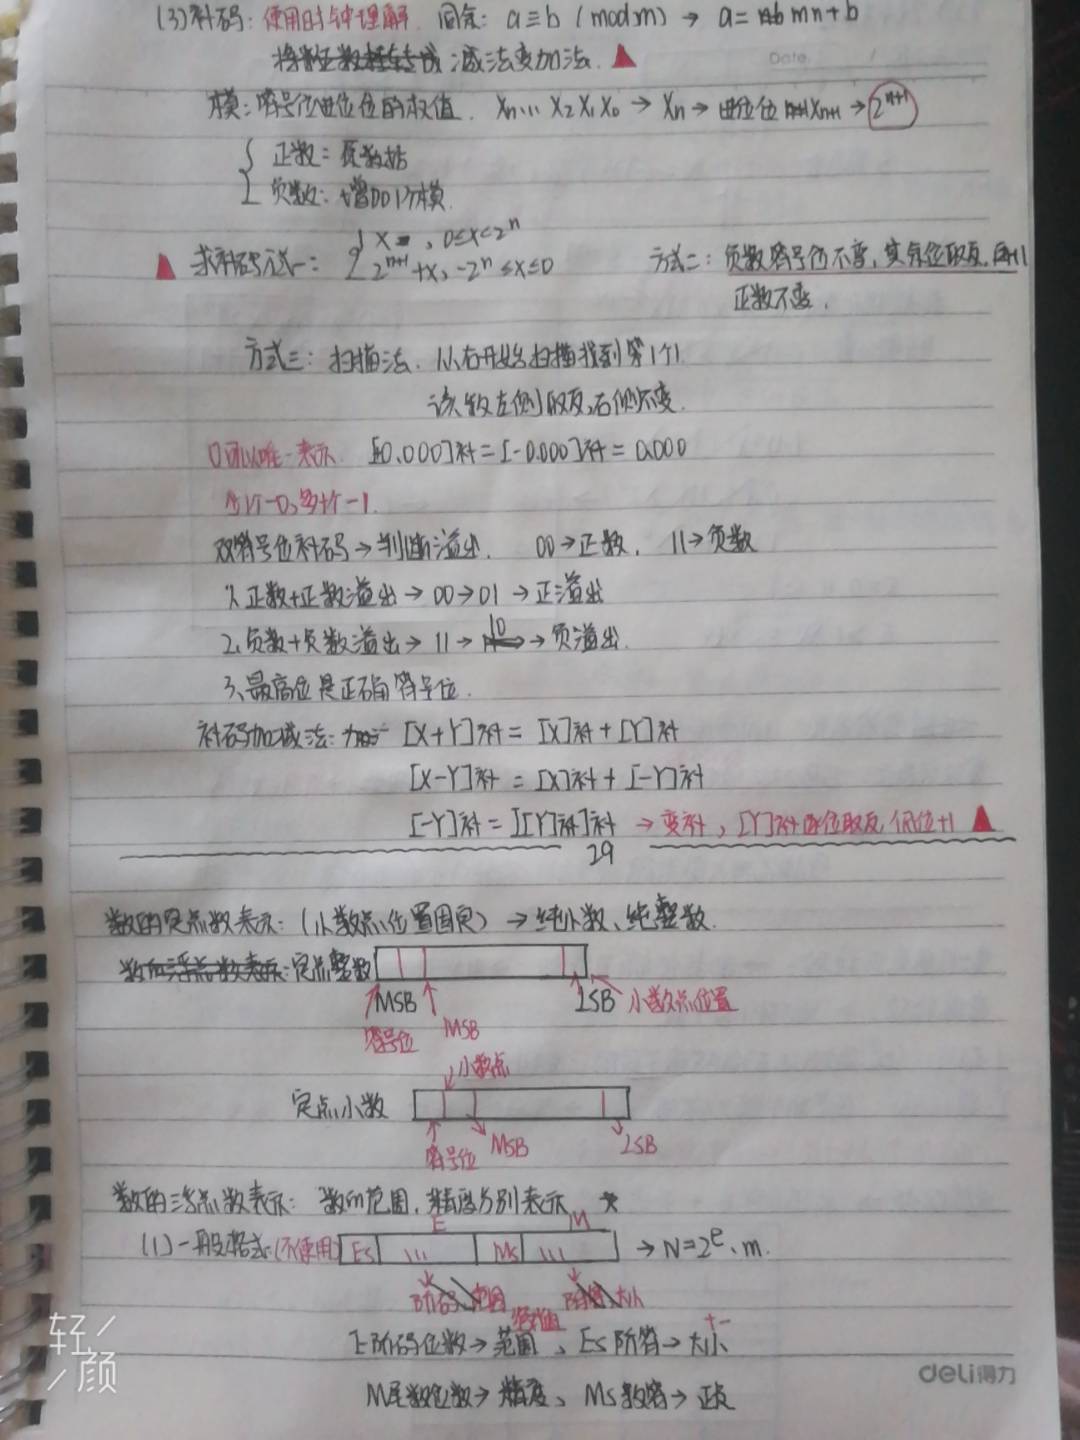 (3)补码: 使用时钟理解. 同余: a≡b (mod m) → a= mn+b
减法变加法. Date.
模: 符号位进位位的权值. Xn... X2X1X0 → Xn → 进位位 Xn+1 → 2^{n+1}
正数: 原数据
负数: 增加1个模.
求补码方式一: { X , 0≤X<2^n
2^{n+1}+X, -2^n≤X≤0 方式二: 负数符号位不变, 其余位取反, 再+1
正数不变.
方式三: 扫描法. 从右开始扫描找到第1个1
该数左侧取反,右侧不变.
0可以唯一表示. [0.000]补=[-0.000]补=0.000
少1个-0,多1个-1.
双符号位补码→判断溢出. 00→正数, 11→负数
1. 正数+正数溢出→00→01→正溢出
2. 负数+负数溢出→11→10→负溢出.
3、最高位是正确符号位.
补码加减法: [X+Y]补=[X]补+[Y]补
[X-Y]补=[X]补+[-Y]补
[-Y]补=[[Y]补]补 → 变补, [Y]补 位取反,低位+1
29
数的定点数表示: (小数点位置固定) → 纯小数、纯整数.
数的浮点数表示: 定点整数
MSB LSB 小数点位置
符号位 MSB
小数点
定点小数
符号位 MSB LSB
数的浮点数表示: 数的范围,精度分别表示
E M
(1)一般格式(不使用) Es ... Ms ... → N=2^e·m.
阶码 范围 大小
+-
E阶码位数→范围、Es阶符→大小
M尾数位数→精度、Ms数符→正负
轻颜
deli得力